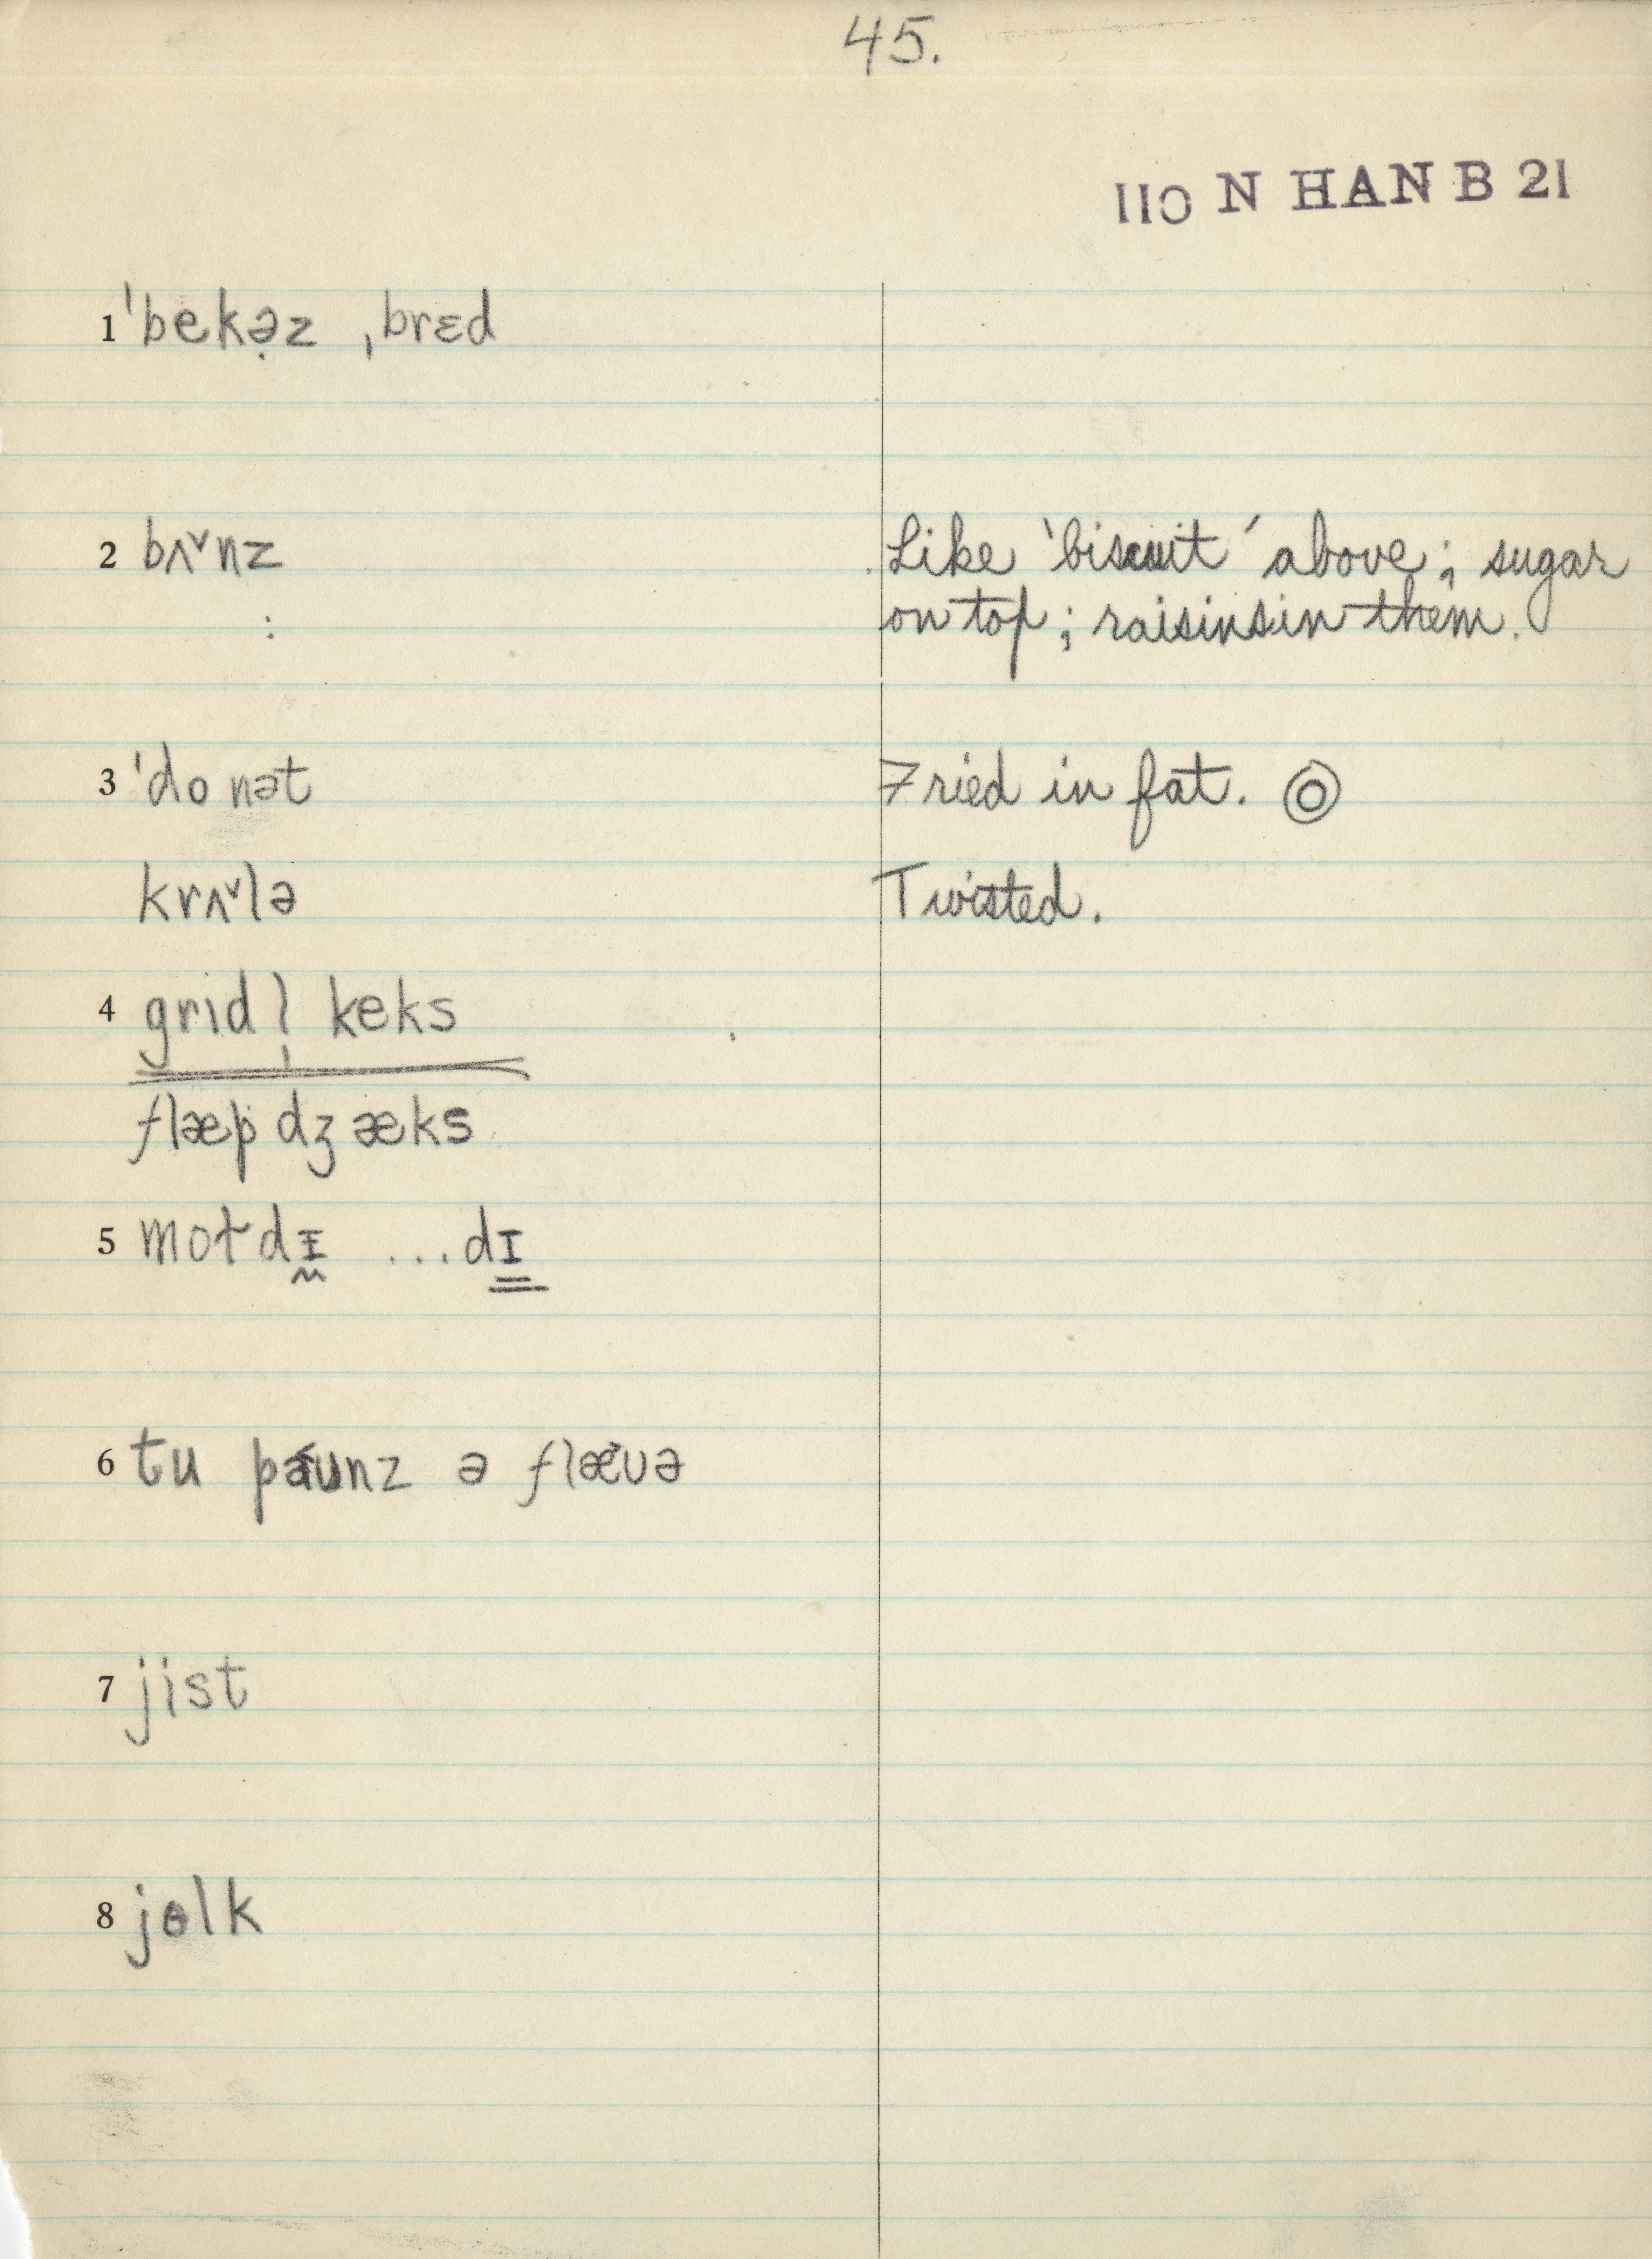 45.
110 N HAN B 21
1 ˈbekə̣z ˌbrɛd
2 bʌˇnz Like 'biscuit' above; sugar
: on top; raisins in them.
3 ˈdonət Fried in fat.
krʌˇlə Twisted.
4 gridl̩ keks
flæp dʒæks
5 dɪ
6 tu ə flæˇʊə
7 jist
8 jɵlk